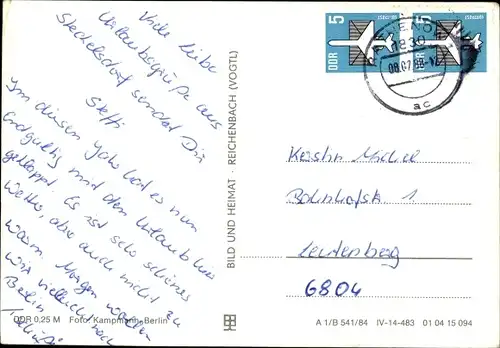 Viele liebe
Urlaubsgrüße aus
Steckelsdorf sendet Dir
Steffi
Im diesen Jahr hat es nun
endgültig mit dem Urlaub hier
geklappt Es ist sehr schönes
Wetter, aber auch nicht zu
warm. Morgen wollen
wir vielleicht nach
Berlin
DDR 0,25 M Foto: Kampmann, Berlin
BILD UND HEIMAT · REICHENBACH (VOGTL)
DDR 5
DDR 5
1830
08.07.88
ac
Kerstin Michel
Bahnhofstr 1
Leutenberg
6804
A 1/B 541/84 IV-14-483 01 04 15 094